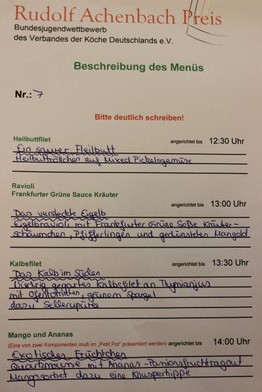 Rudolf Achenbach Preis
Bundesjugendwettbewerb
des Verbandes der Köche Deutschlands e.V.
Beschreibung des Menüs
Nr.: 7
Bitte deutlich schreiben!
Heilbuttfilet angerichtet bis 12:30 Uhr
Ein saurer Heilbutt
Heilbuttröllchen auf Mixed Pickelsgemüse
Ravioli
Frankfurter Grüne Sauce Kräuter angerichtet bis 13:00 Uhr
Das versteckte Eigelb
Eigelbravioli mit Frankfurter Grüne Soße Kräuter-
schäumchen, Pfifferlingen und gedünsteten Mangold
Kalbsfilet angerichtet bis 13:30 Uhr
Das Kalb im Süden
gegartes Kalbsfilet an Thymianjus
mit , grünem Spargel
dazu Selleriepüree
Mango und Ananas angerichtet bis 14:00 Uhr
(Eine von zwei Komponenten muß im "Petit Pot" präsentiert werden)
Exotisches Früchtchen
Quarkmousse mit Ananas-
Mangosorbet dazu eine Knusperhippe